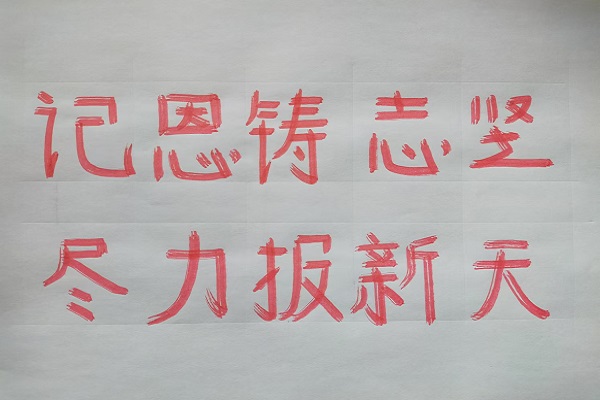 记恩铸志坚
尽力报新天